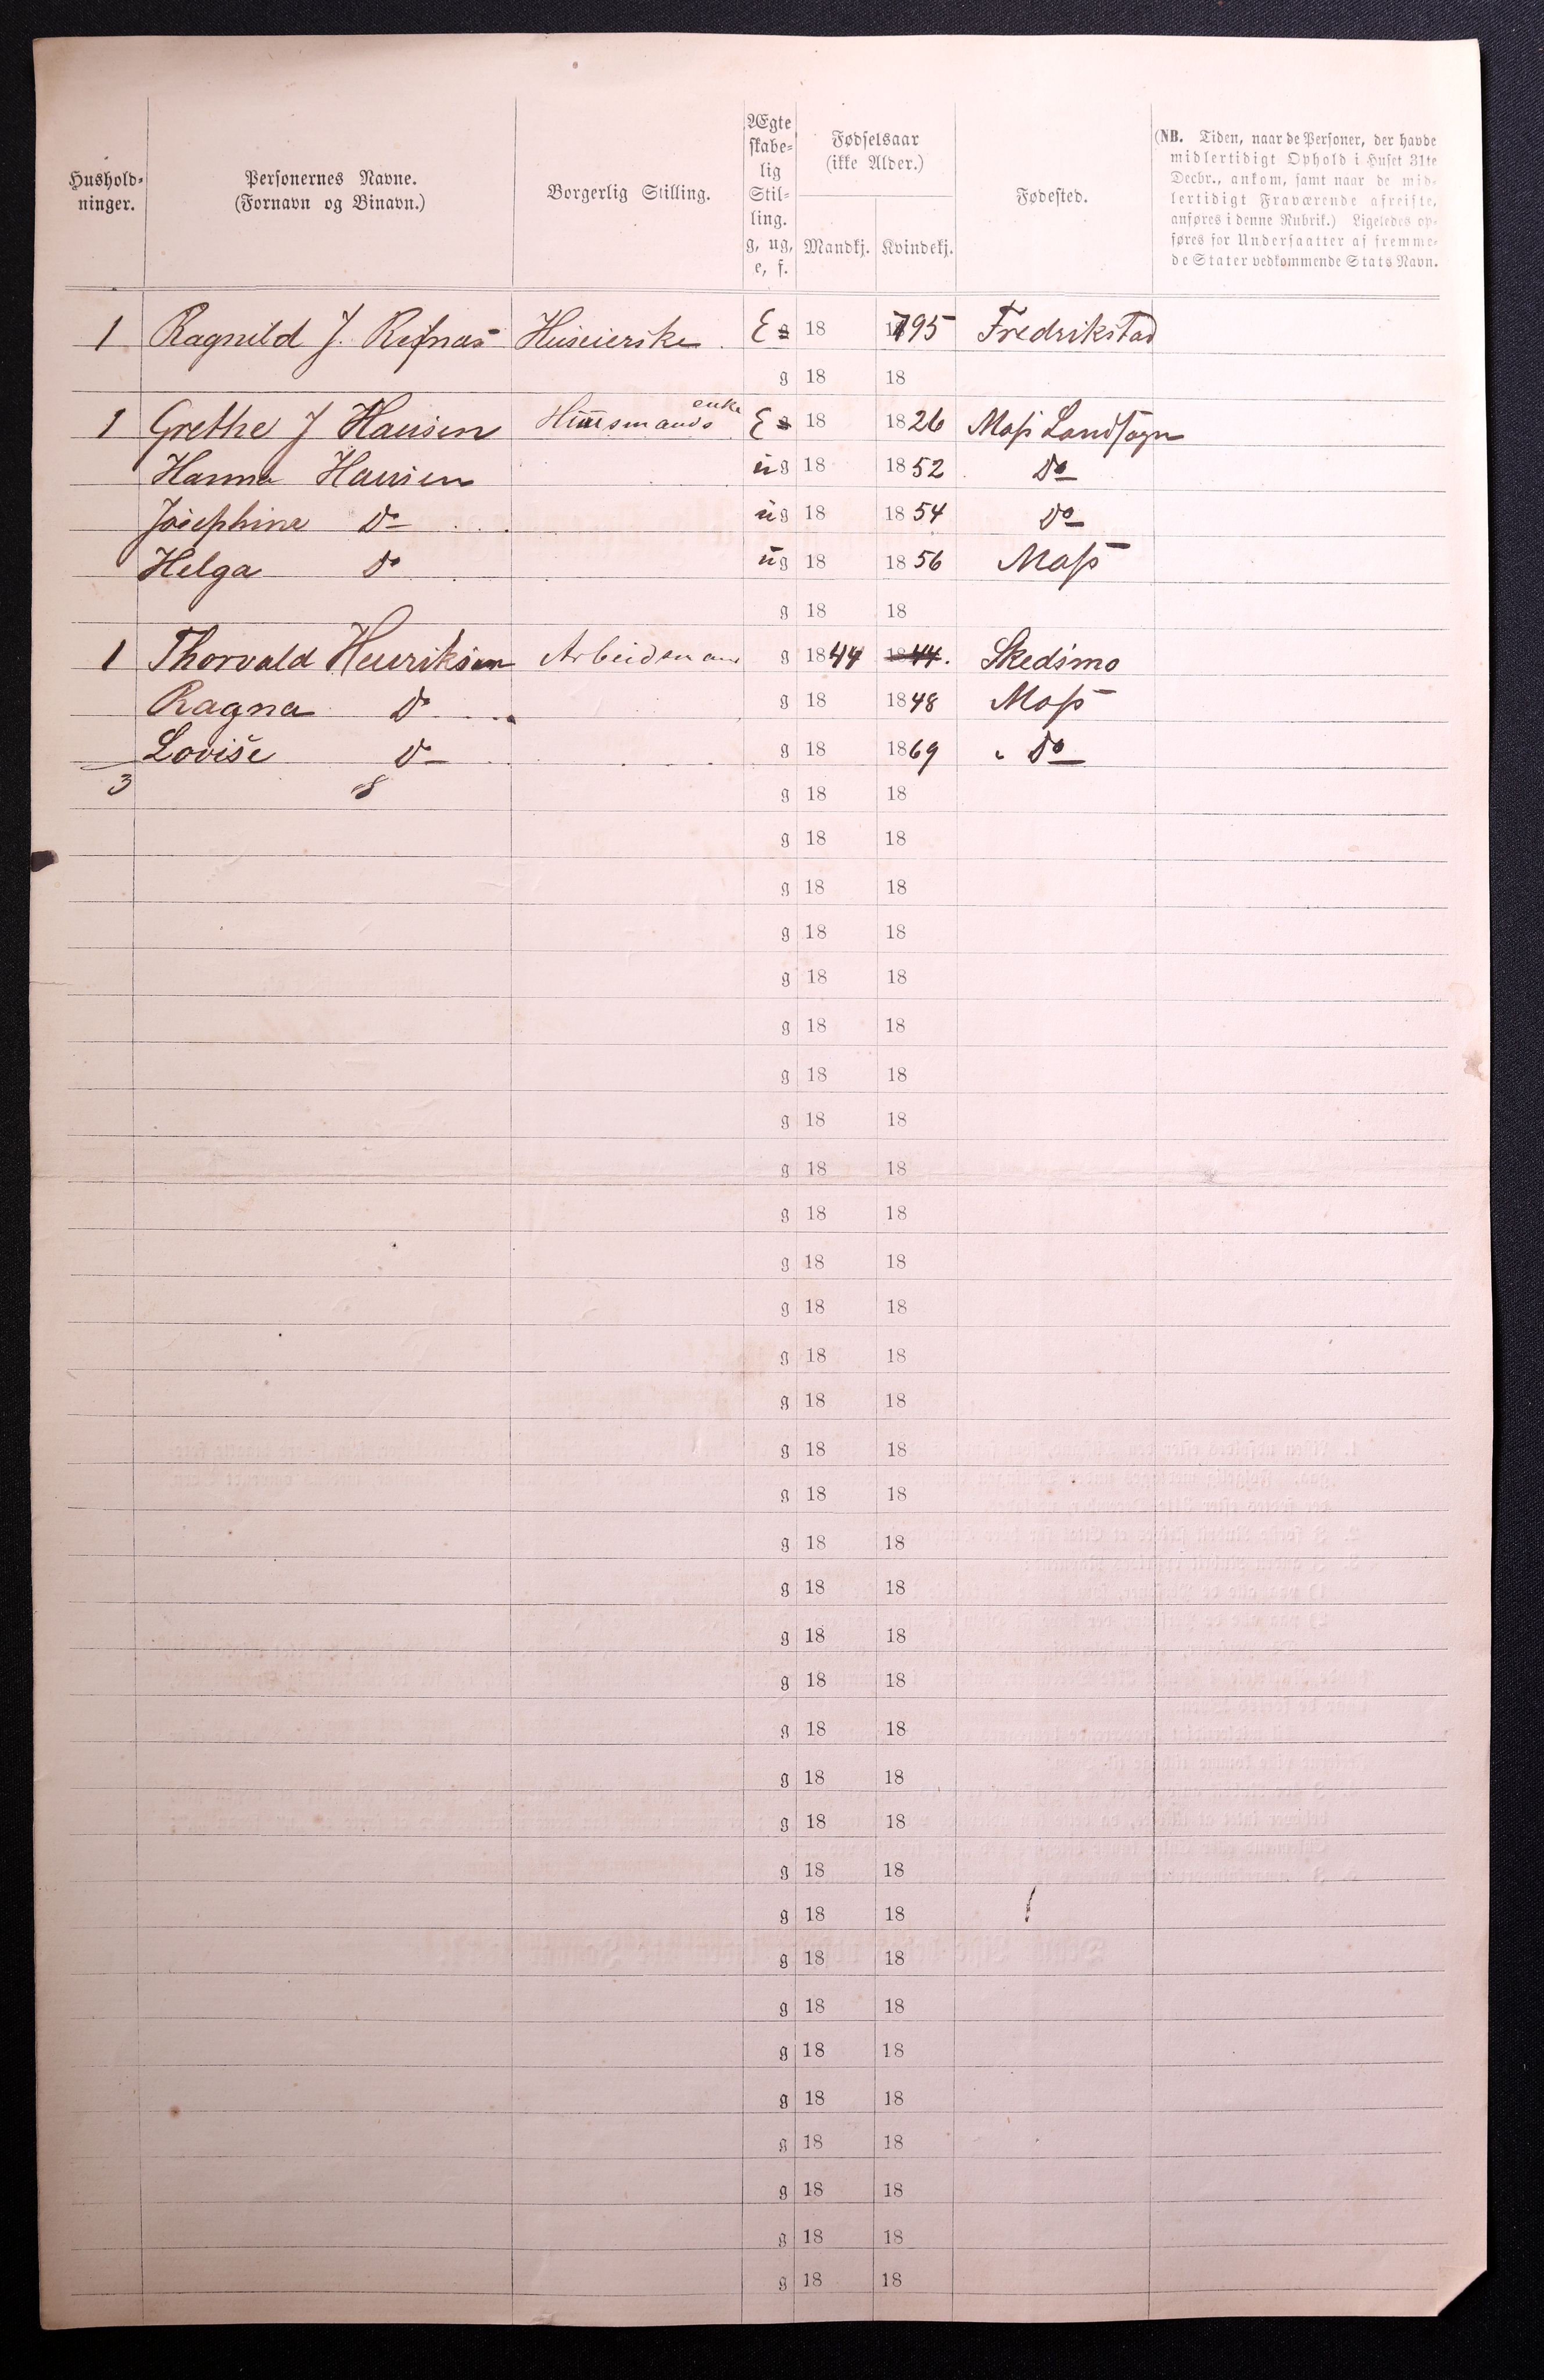 Hushold-
ninger.
Personernes Navne.
(Fornavn og Binavn.)
Borgerlig Stilling.
Ægte
skabe-
lig
Stil-
ling.
g, ug,
e, f.
Fødselsaar
(ikke Alder.)
Mandkj. Kvindekj.
Fødested.
(NB. Tiden, naar de Personer, der havde
midlertidigt Ophold i Huset 31te
Decbr., ankom, samt naar de mid-
lertidigt Fraværende afreiste,
anføres i denne Rubrik.) Ligeledes op-
føres for Undersaatter af fremme-
de Stater vedkommende Stats Navn.
1 Ragnild J. Refnas Huseierske E g 18 1795 Fredrikstad
g 18 18
enke
1 Grethe J Hansen Huusmands E g 18 1826 Moss Landsogn
Hanna Hansen ug 18 1852 Do
Josephine Do ug 18 1854 Do
Helga Do ug 18 1856 Moss
g 18 18
1 Thorvald Henriksen Arbeidsman g 1844 1844. Skedsmo
Ragna Do g 18 1848 Moss
Lovise Do g 18 1869 " Do
3 8 g 18 18
g 18 18
g 18 18
g 18 18
g 18 18
g 18 18
g 18 18
g 18 18
g 18 18
g 18 18
g 18 18
g 18 18
g 18 18
g 18 18
g 18 18
g 18 18
g 18 18
g 18 18
g 18 18
g 18 18
g 18 18
g 18 18
g 18 18
g 18 18
g 18 18
g 18 18
g 18 18
g 18 18
g 18 18
g 18 18
g 18 18
g 18 18
g 18 18